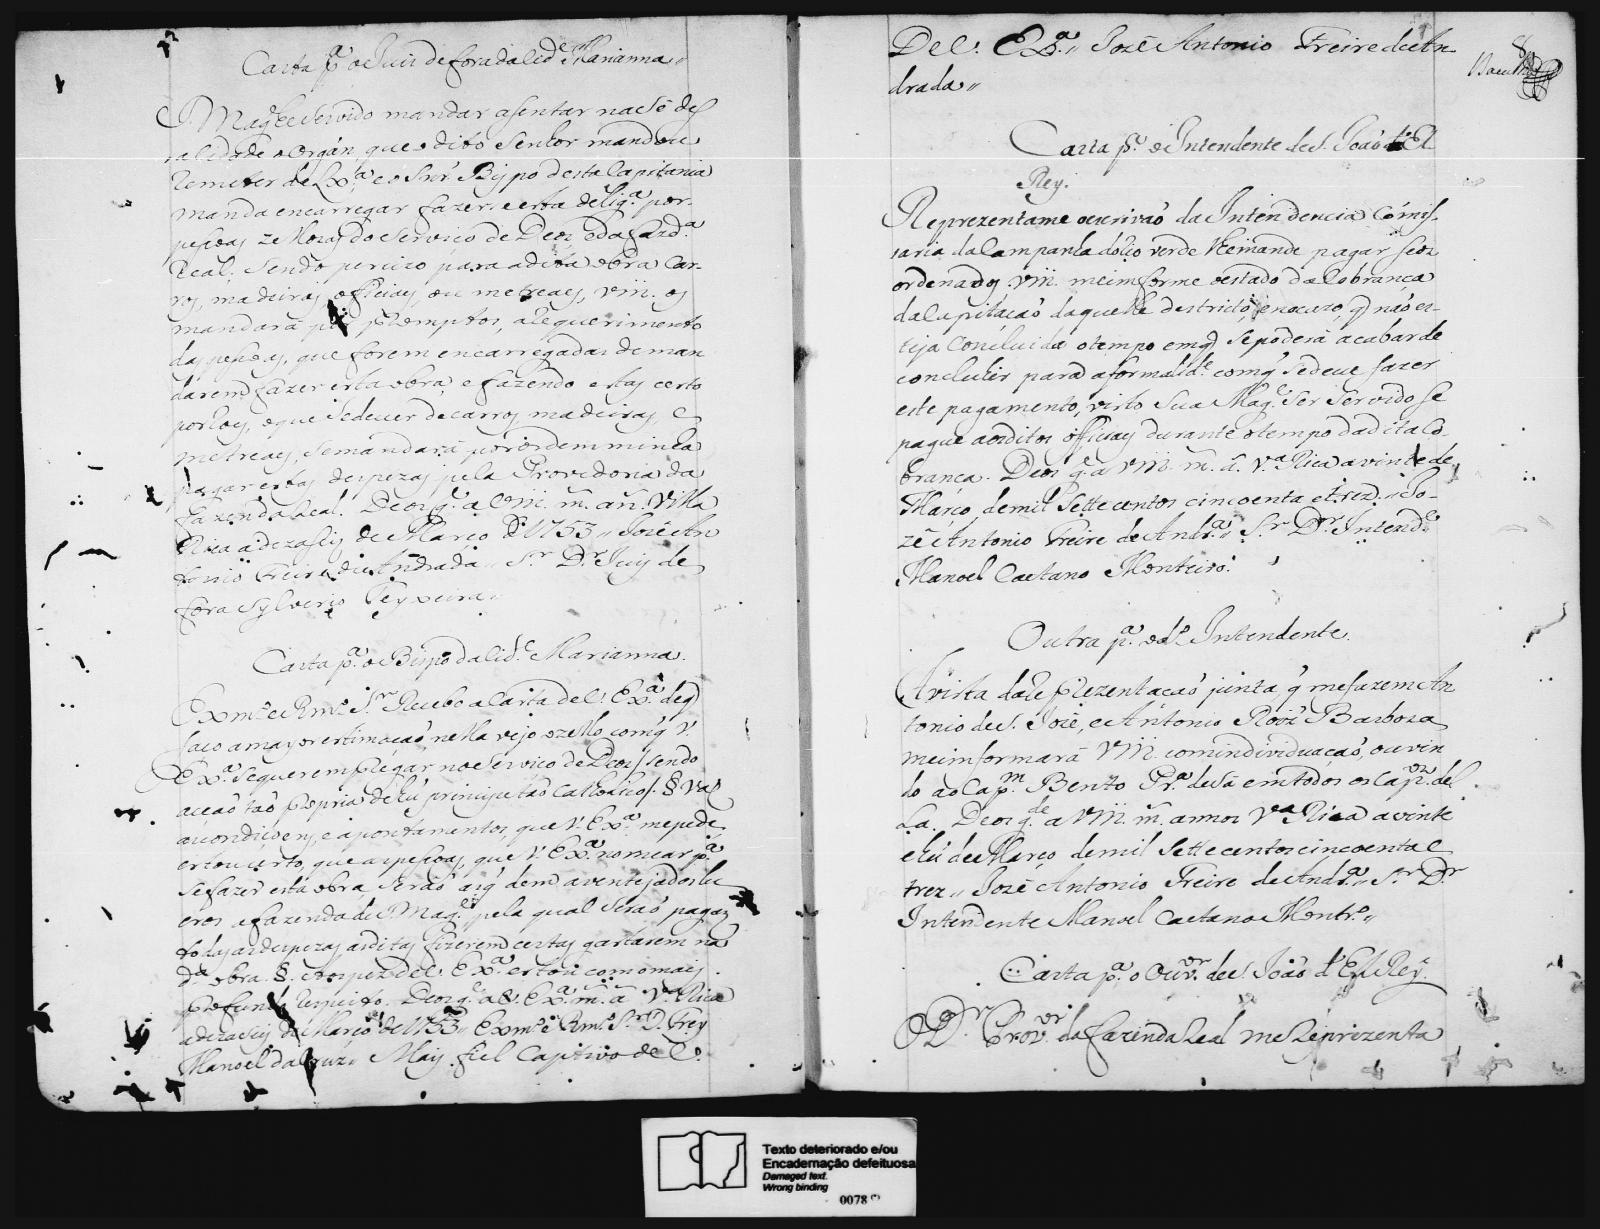 Carta p.ª o Juis de fora da Cid.e Marianna,,
S. Mag.e he Servido mandar asentar na Sé des
sa Cidade o Orgaõ, que o dito Senhor mandou
remeter de Lx.ª e o Snr̃ Bispo desta Capitania
manda encarregar fazer se esta delig.ª por
pesoas zellozas do Serviço de Deos, e da fazd.ª
Real. Sendo percizo para a dita obra Car-
ros, madeiras, oficiaes, ou metreaes, Vm. os
mandará pôr promptos, a requerimento
das pesoas, que forem encarregadas de man
darem fazer esta obra, e fazendo estas certo
por Roes, o que sedever de carros, madeiras, e
metreaes, se mandará por ordem minha
pagar estas despezas pela Provedoria da
fazenda Real. Deos g.e a Vm. m. an. Villa
Rica a dezaseis de Março de 1753,, Jozé An
tonio Freire de Andrada,, S.r D.r Juis de
fora Sylverio Teyxeira,,
Carta p.ª o Bispo da Cid.e Marianna.
Exm.º e Rm.º S.r Recebo a Carta de V. Ex.ª de q
faço a mayor estimaçaõ, nella vejo o zello com q̃ V.
Ex.ª se quer empregar no Serviço de Deos / sendo
acçaõ taõ propria de hũ principe taõ Catholico /. §
as condiçoens, e apontamentos, que V. Ex.ª me pede
estou certo, que as pesoas, que V. Ex.ª nomear p.ª
se fazer esta obra Seraõ as q̃ dem aventejados lu
cros a fazenda de S. Mag.e pela qual seraõ pagas
todas as despezas as ditas fizerem certas gastarem na
d.ª obra. §. Ao despor de V. Ex.ª estou com o mais
profundo respeito. Deos g.e a V. Ex.ª m. a. V.ª Rica
a dezaseis de Março de 1753,, Exm.º e Rm.º S.r D. Frey
Manoel da Cruz,, Mais fiel Captivo de V.
De V. Ex.ª,, Jozé Antonio Freire de An-
drada,,
8
Carta p.ª o Intendente de S. Joaõ d' El
Rey.
Reprezentame o escrivaõ da Intendencia Comis-
saria da Campanha do Rio verde lhe mande pagar seos
ordenados. Vm. me imforme o estado da Cobrança
da Capitaçaõ daquelle destricto, e no cazo, q̃ naõ es-
teja Concluida o tempo em q̃ se poderá acabar de
concluhir para a formalid.e com q̃ se deve fazer
este pagamento, visto Sua Mag.e Ser Servido se
pague aos ditos oficiaes durante o tempo da dita Co-
brança. Deos g.e a Vm. m. a. V.ª Rica a vinte de
Março de mil Sette centos cincoenta e trez,, Jo-
zé Antonio Freire de Andr.ª,, S.r D.r Intend.e
Manoel Caetano Monteiro.
Outra p.ª o d.º Intendente.
Á vista da reprezentaçaõ junta, q̃ me fazem An
tonio de S. Jozé, e Antonio Roiz' Barboza
me informará Vm. com individuaçaõ, ouvin
do ao Cap.m Bento Pr.ª de Sá em todos os Cap.os del
la. Deos g.de a Vm. m. annos V.ª Rica a vinte
e hũ de Março de mil Sette centos cincoenta e
trez,, Jozé Antonio Freire de Andr.ª,, S.r D.r
Intendente Manoel Caetano Montr.º,,
Carta p.ª o Ouv.or de S. Joaõ d' El Rey.
O D.r Prov.or da fazenda Real me reprizenta
Texto deteriorado e/ou
Encadernação defeituosa
Damaged text.
Wrong binding
0078